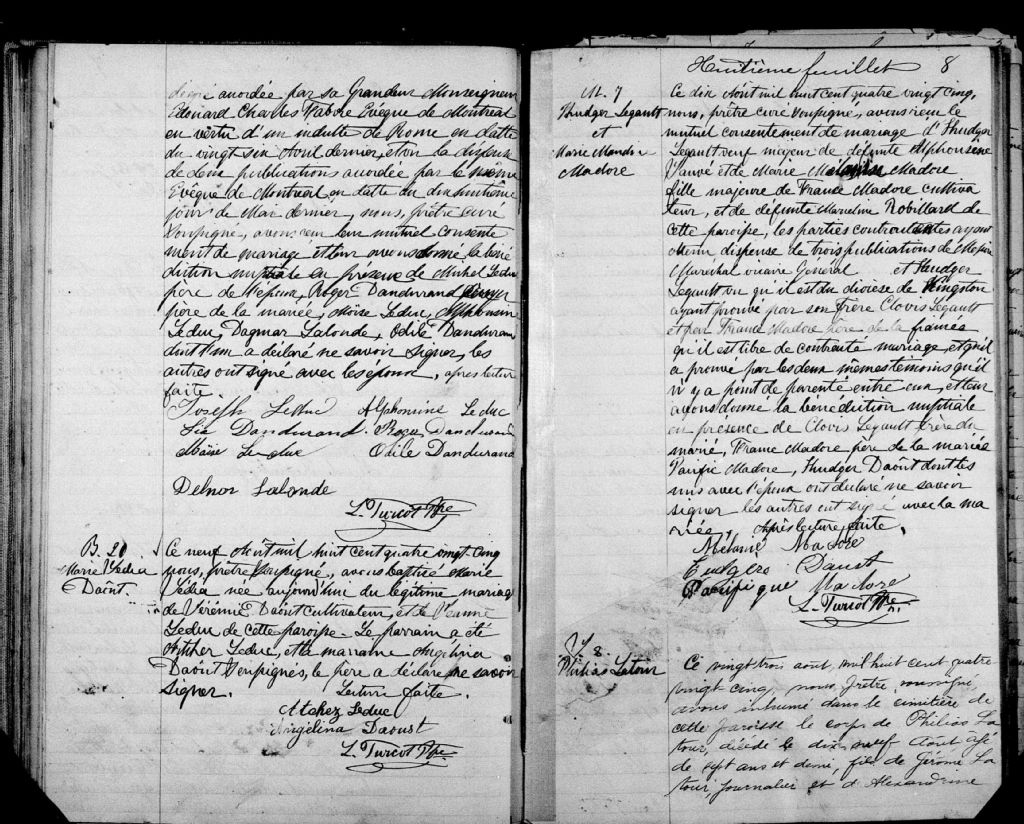 accordée par sa Grandeur Monseigneur
Edouard Charles Fabre Evêque de Montreal
en vertu d'un indulte de Rome en datte
du vingt six Avril dernier, et vu la dispense
de deux publications accordée par le même
Evêque de Montreal en datte du dix huitième
jour de Mai dernier, nous, prêtre curé
soussigné, avons reçu leur mutuel consente
ment de mariage et leur avons donné la béné
diction nuptiale en presence de Michel Leduc
père de l'époux, Roger Dandurand
père de la mariée, Moïse Leduc, Alphonsine
Leduc, Dagmar Lalonde, Odile Dandurand
dont l'un a déclaré ne savoir signer, les
autres ont signé avec les epoux, après lecture
faite.
Joseph Leduc Alphonsine Leduc
Dandurand. Roger Dandurand
Moïse Leduc Odile Dandurand
Delnor Lalonde
L. Turcot Ptre
B. 20
Marie Védia
Daôut.
Ce neuf Aôut mil huit cent quatre vingt-cinq
nous, prêtre soussigné, avons baptisé Marie
Védia née aujourd'hui du légitime mariage
de Jérémie Daôut cultivateur, et de
Leduc de cette paroisse. Le parrain a été
Leduc, et la marraine Angelina
Daôut soussignés, le père a déclaré ne savoir
signer. Lecture faite.
Atchez Leduc
Angélina Daoust
L. Turcot Ptre
Huitième feuillet 8
M. 7
Hudger Legault
et
Marie
Madore
Ce dix Aout mil huit cent quatre vingt cinq,
nous, prêtre curé soussigné, avons reçu le
mutuel consentement de mariage d'Hudger
Legault veuf majeur de défunte Alphonsine
Sauvé et de Marie Madore
fille majeure de France Madore cultiva
teur, et de défunte Marceline Robillard de
cette paroisse, les parties contractantes ayant
obtenu dispense de trois publications de Messire
Marechal vicaire General et Hudger
Legault vu qu'il est du diocèse de Kingston
ayant prouvé par son frère Clovis Legault
et par France Madore père de la
qu'il est libre de contracter mariage, et qu'il
a prouvé par les deux memes temoins qu'il
n'y a point de parenté entre eux, et leur
avons donné la bénédiction nuptiale
en présence de Clovis Legault frère du
marié, France Madore père de la mariée
Pacific Madore, Hudger Daôut dont les
uns avec l'époux ont declaré ne savoir
signer les autres ont signé avec la ma
riée. Après lecture faite.
Mélanie Madore
Eudgere Daust
Pacifique Madore
L. Turcot Ptre
S. 8.
Philias Latour
Ce vingt trois aout, mil huit cent quatre
vingt cinq, nous, prêtre, soussigné,
avons inhumé dans le cimetière de
cette paroisse le corps de Philias La
tour, décédé le dix neuf Août agé
de sept ans et demi, fils de Jérôme La
tour, journalier et d'Alexandrine